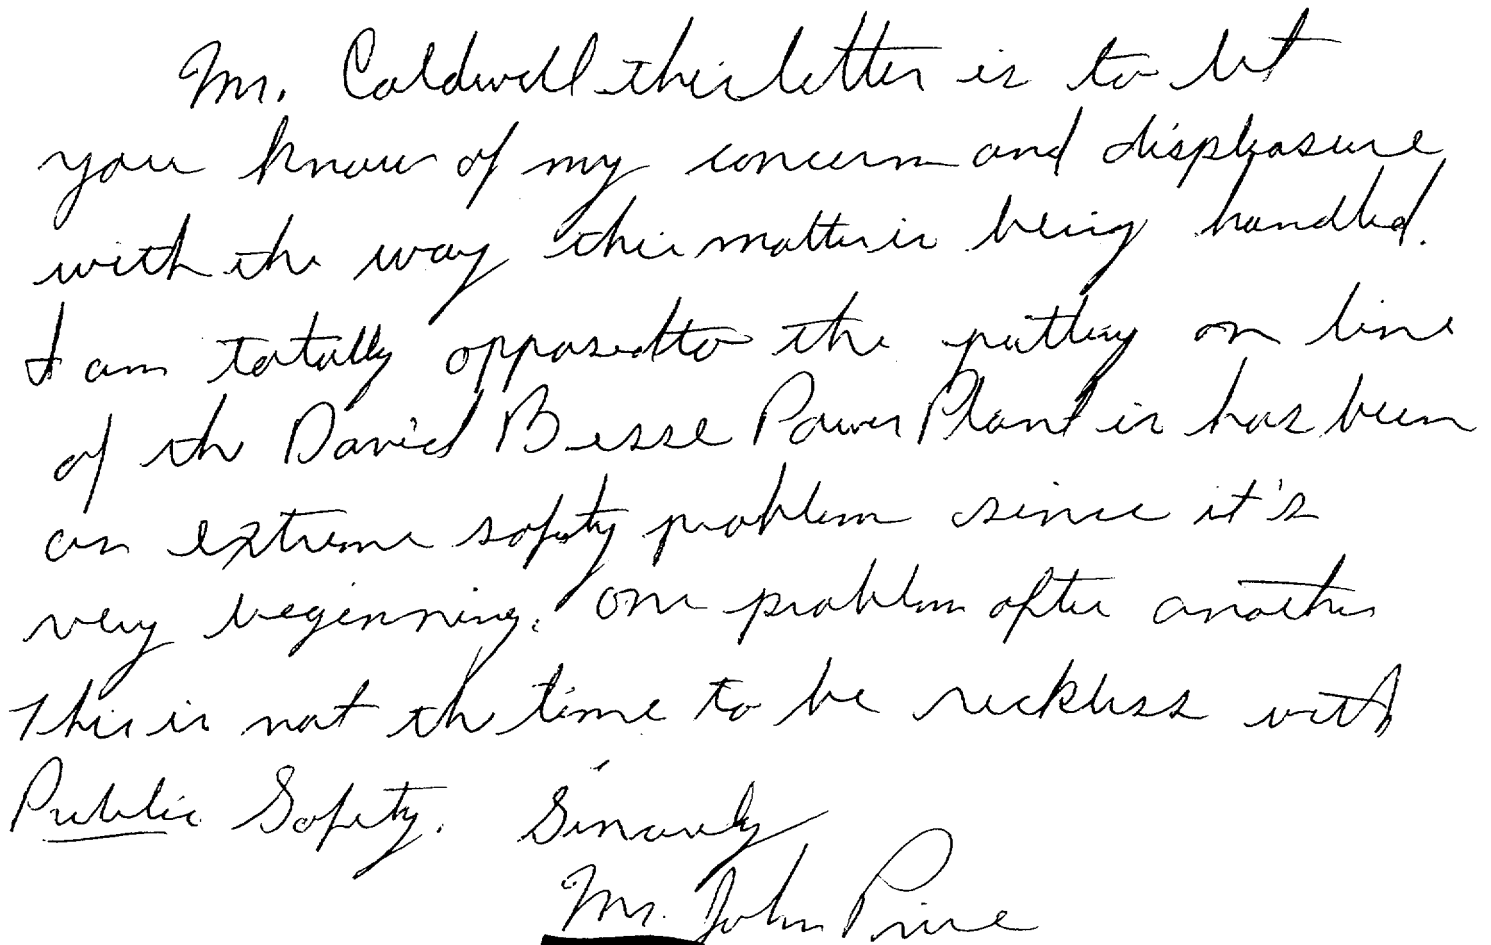 Mr. Caldwell this letter is to let
you know of my concern and displeasure
with the way this matter is being handled.
I am totally opposed to the putting on line
of th David Besse Power Plant is has been
an extreme safety problem since it's
very beginning. One problem after another
This is not th time to be reckless with
Public Safety. Sincerely
Mr. John Prine